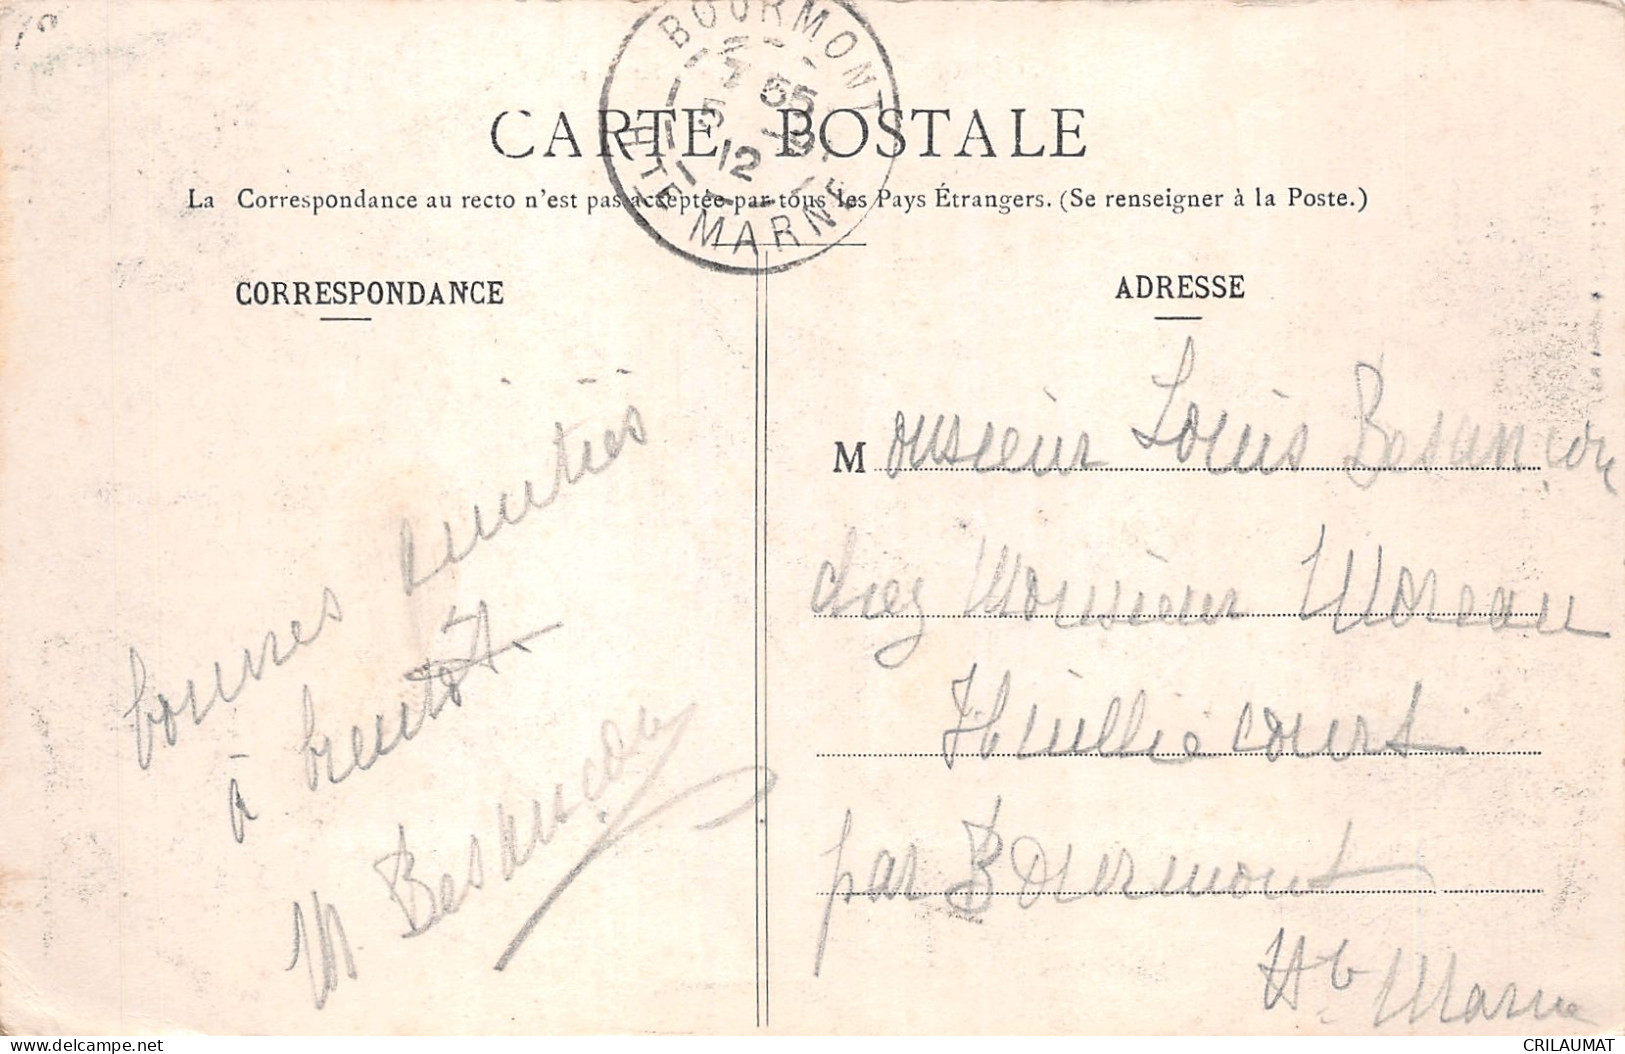 BOURMONT
7 55
5
12
HTE MARNE
CARTE POSTALE
La Correspondance au recto n'est pas acceptée par tous les Pays Étrangers. (Se renseigner à la Poste.)
CORRESPONDANCE
bonnes amitiés
à bientôt
M Besançon
ADRESSE
Monsieur Louis Besançon
chez Monsieur Moreau
Huilliécourt
par Bourmont
Hte Marne
CRILAUMAT